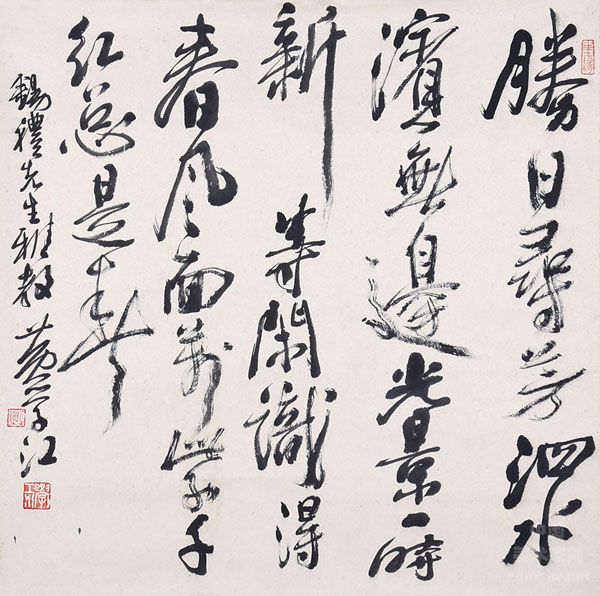 勝日尋芳泗水
濱無邊光景一時
新 等閑識得
春風面萬紫千
紅總是春
錫禮先生雅教 黄 江